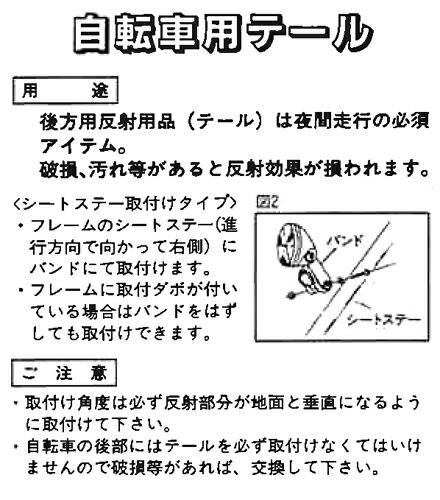 自転車用テール
用　途
後方用反射用品（テール）は夜間走行の必須
アイテム。
破損、汚れ等があると反射効果が損われます。
<シートステー取付けタイプ>
・フレームのシートステー(進
行方向で向かって右側）に
バンドにて取付けます。
・フレームに取付ダボが付い
ている場合はバンドをはず
しても取付けできます。
図2
バンド
シートステー
ご 注 意
・取付け角度は必ず反射部分が地面と垂直になるよう
に取付けて下さい。
・自転車の後部にはテールを必ず取付けなくてはいけ
ませんので破損等があれば、交換して下さい。